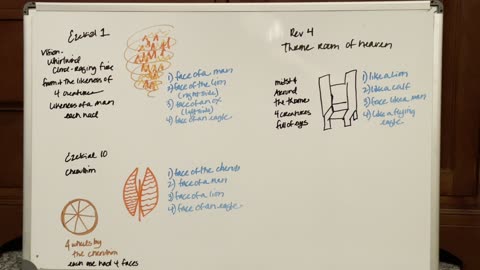 Ezekiel 1
Vision-
whirlwind
Cloud-raging fire
from it the likeness of
4 creatures
likeness of a man
each had
1) face of a man
2) face of the lion
(right side)
3) face of an ox
(left side)
4) face of an eagle
Rev 4
Throne room of heaven
midst &
around
the throne
4 creatures
full of eyes
1) like a lion
2) like a calf
3) face like a man
4) like a flying
eagle
Ezekiel 10
cherubim
1) face of the cherub
2) face of a man
3) face of a lion
4) face of an eagle
4 wheels by
the cherubim
each one had 4 faces